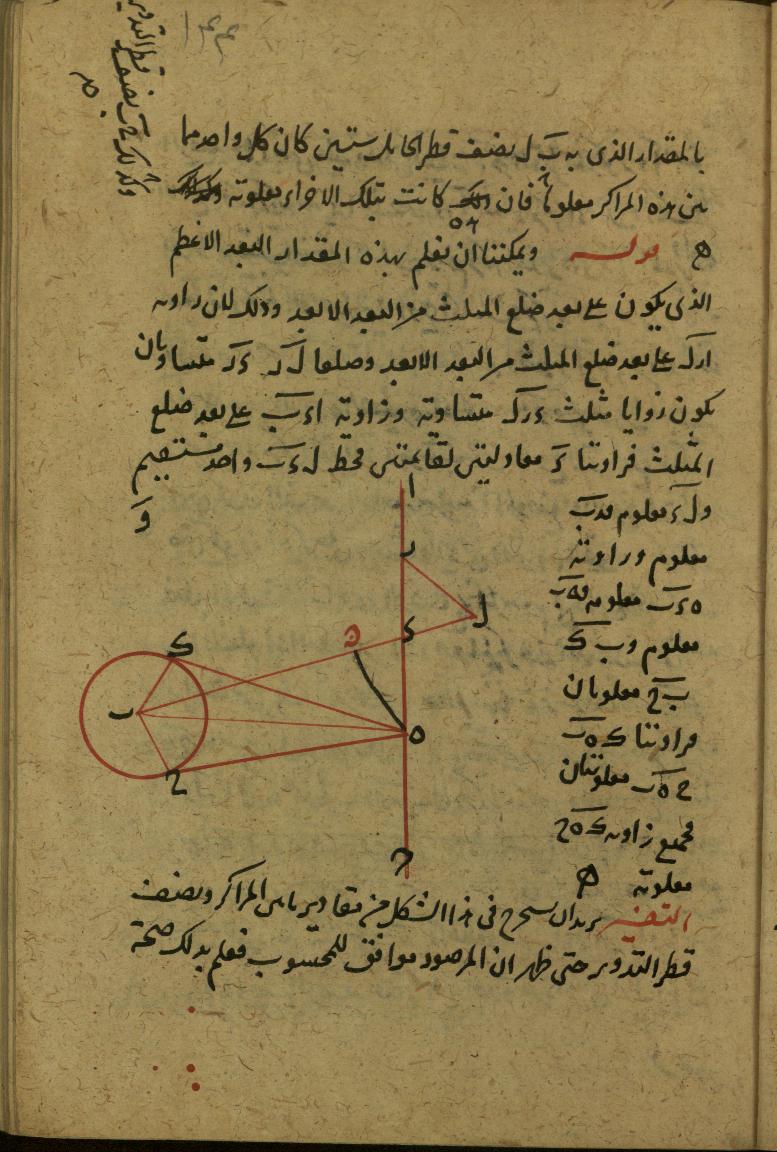 قطر التدوير
وكذلك نصف
بالمقدار الذى به ب ل نصف قطر الحامل ستين كان كل واحد مما
بين هذه المراكز معلوما فان كانت بتلك الاجزاء معلومة
قوله ويمكننا ان نعلم بهذه المقدار البعد الاعظم
الذى يكون على بعد ضلع المثلث من البعد الابعد وذلك لان زاوية
ا ر ل على بعد ضلع المثلث من البعد الابعد وضلعا ل ر ء ر متساويان
يكون زوايا مثلث ء ر ل متساوية وزاوية ا ء ب على بعد ضلع
المثلث فزاويتا ء معادلتين لقائمتين فخط ل ء ب واحد مستقيم
و
و ل ء معلوم
معلوم وزاوية
ه ء ب معلومة
معلوم و ب ك
ب ح معلومان
فزاويتا ك ه ب
ح ه ب معلومتان
فجميع زاوية ك ه ح
معلومة
ا
ر
ل
ء
ن
ك
ب
ه
ح
ج
التفسير يريد ان يستخرج فى هذا الشكل من مقادير ما بين المراكز ونصف
قطر التدوير حتى ظهر ان المرصود موافق للمحسوب فعلم بذلك صحة